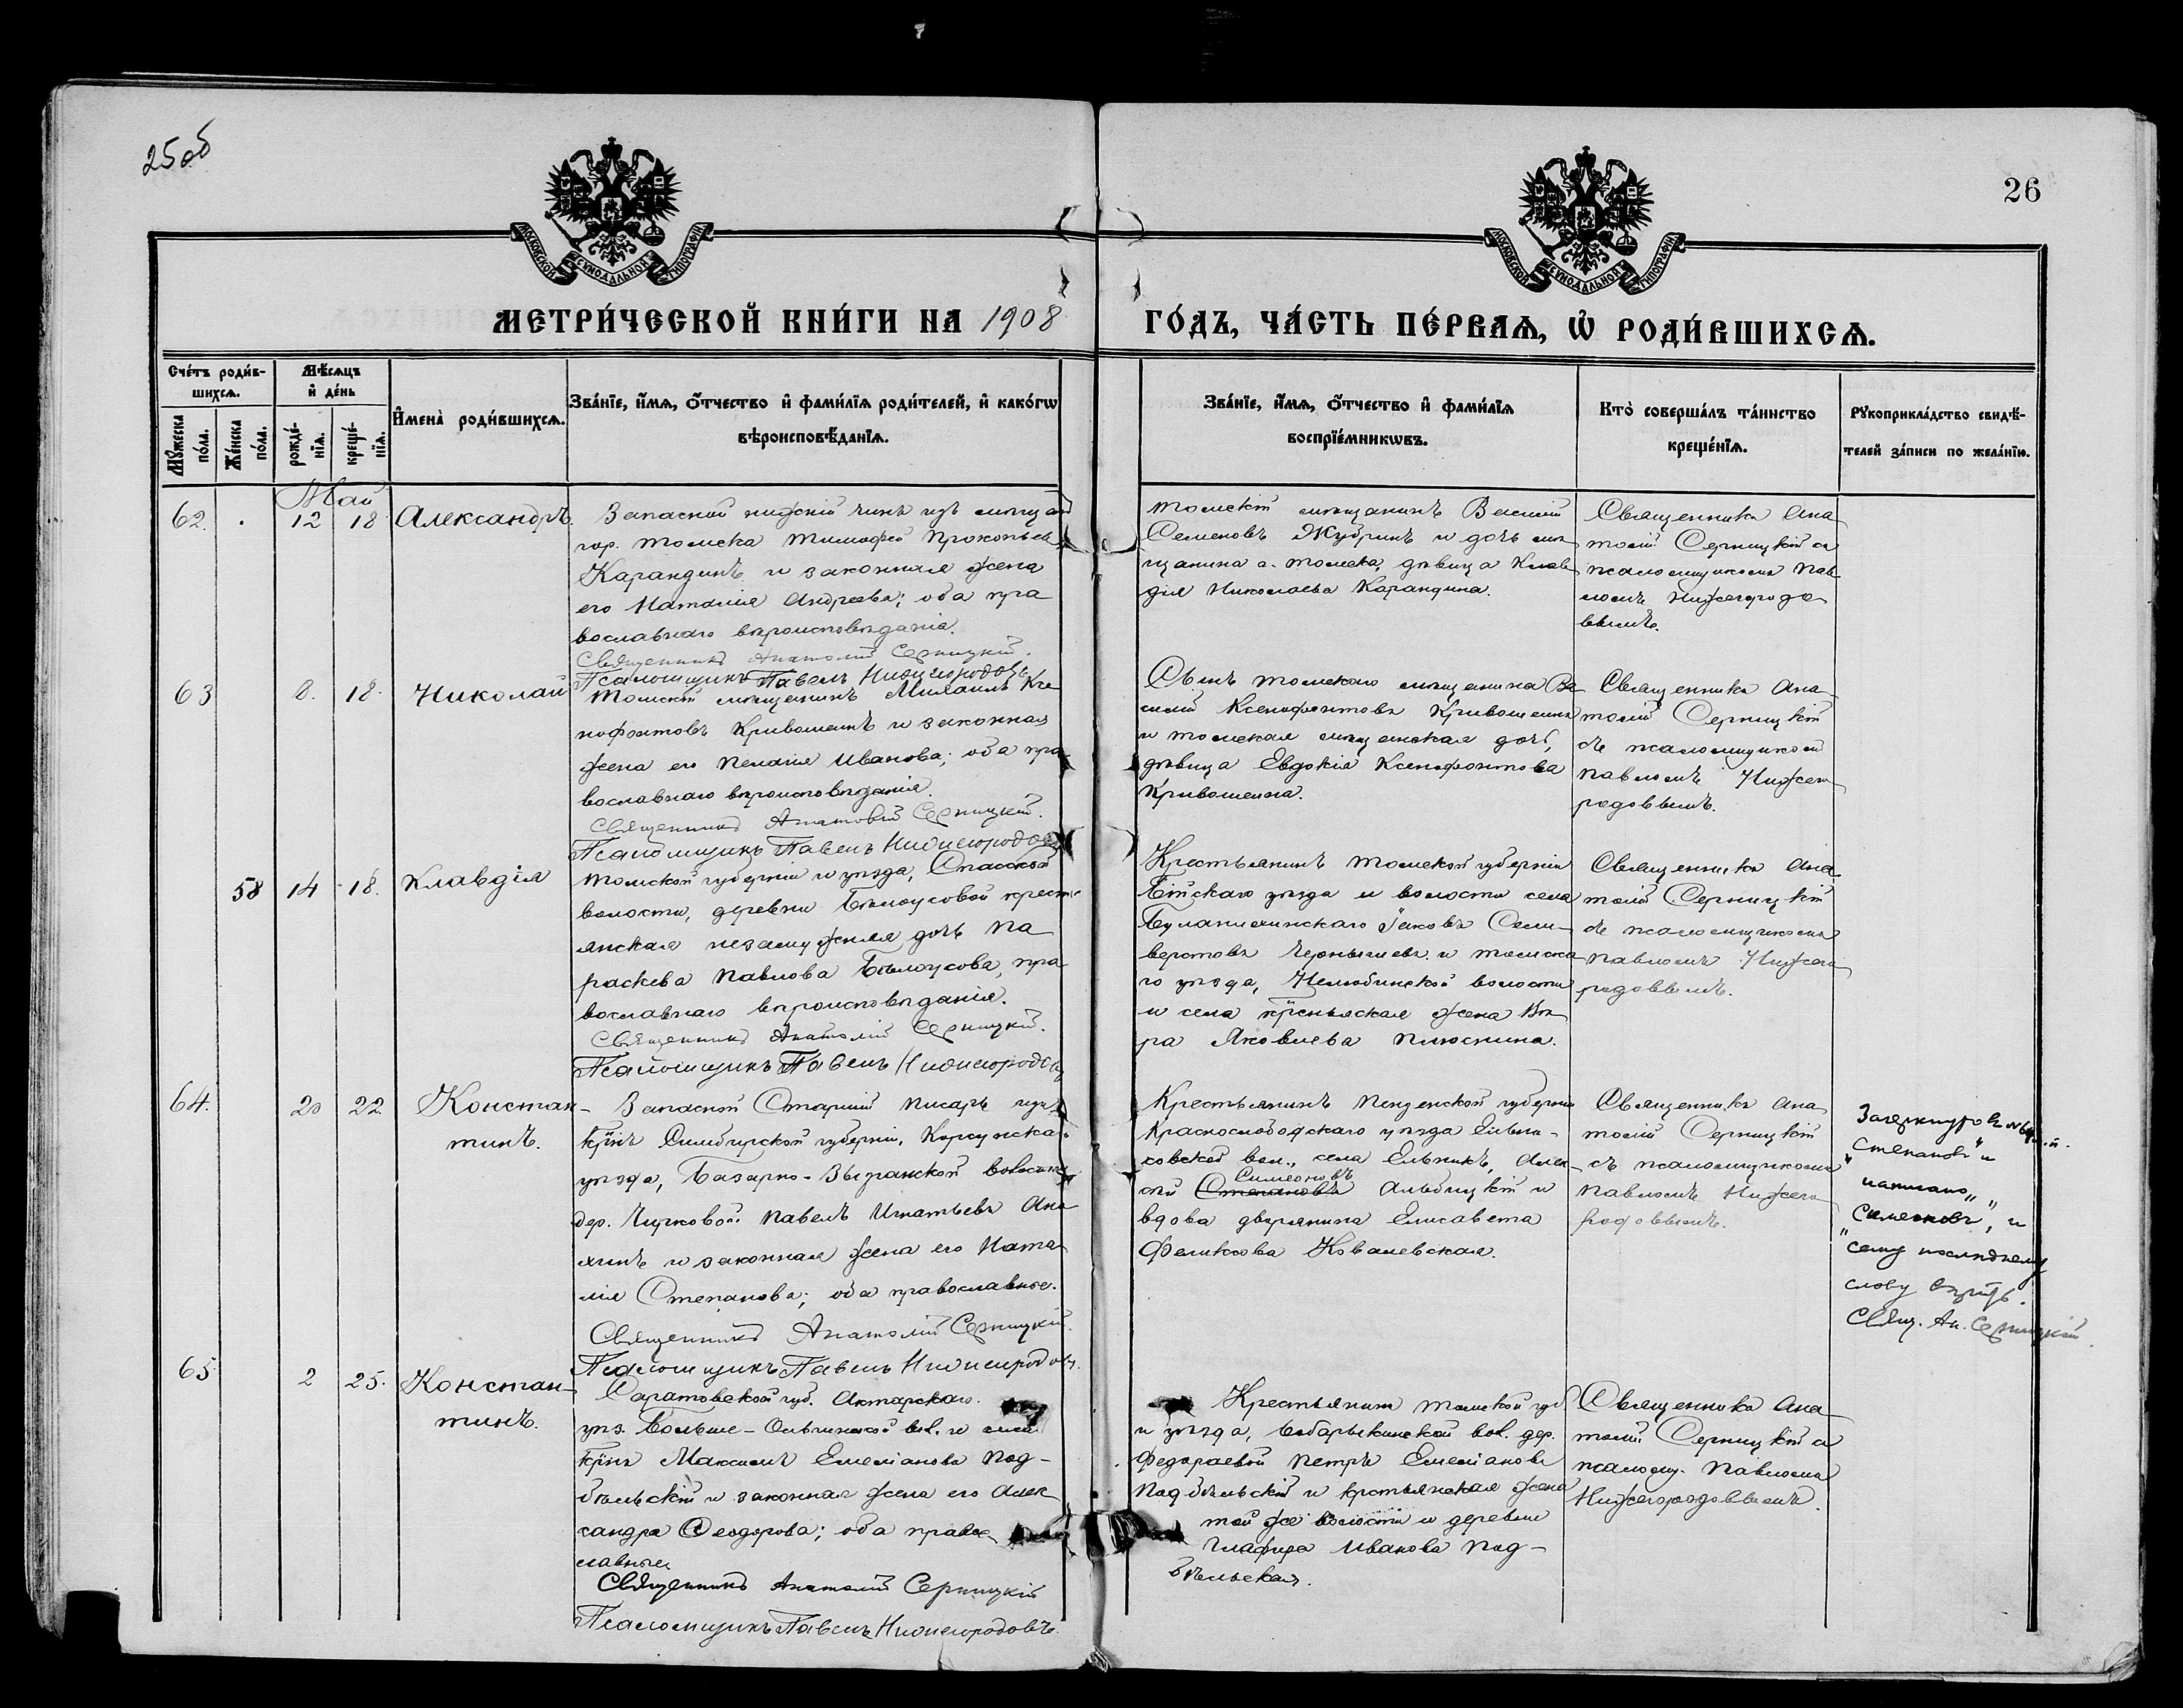 25об
26
МОСКОВСКОЙ СУНОДАЛЬНОЙ ТИПОГРАФІИ
МОСКОВСКОЙ СУНОДАЛЬНОЙ ТИПОГРАФІИ
МЕТРИ́ЧЕСКОЙ КНИ́ГИ НА 1908
ГО́ДЪ, ЧА́СТЬ ПЕ́РВАѦ, Ѡ҆ РОДИ́ВШИХСѦ.
Сче́тъ роди́в-
шихсѧ.
Мѣ́сѧцъ
и҆ де́нь
Мꙋ́жеска
по́ла.
Же́нска
по́ла.
рожде́-
нїѧ.
креще́-
нїѧ.
И҆мена̀ роди́вшихсѧ.
Зва́нїе, и҆́мѧ, ѻ҆́тчество и҆ фами́лїѧ роди́телей, и҆ како́гѡ
вѣроисповѣ́данїѧ.
Зва́нїе, и҆́мѧ, ѻ҆́тчество и҆ фами́лїѧ
воспрїе́мникѡвъ.
Кто̀ соверша́лъ та́инство
креще́нїѧ.
Рꙋкоприкла́дство свидѣ́-
телей за́писи по жела́нїю.
Май
62. 12 18 Александръ.
Запасной нижній чинъ изъ мѣщанъ
гор. Томска Тимофей Прокопьевъ
Карандинъ и законная жена
его Наталія Андреева; оба пра
вославнаго вѣроисповѣданія.
Священникъ Анатолій Серницкій.
Псаломщикъ Павелъ Нижегородовъ
Томскій мѣщанинъ Василій
Семеновъ Жубринъ и дочь мѣ
щанина г. Томска, дѣвица Клав
дія Николаева Карандина.
Священникъ Ана
толій Серницкій съ
псаломщикомъ Пав
ломъ Нижегородо
вымъ.
63 8. 18. Николай
Томскій мѣщанинъ Михаилъ Ксе
нофонтовъ Кривошеинъ и законная
жена его Пелагія Иванова; оба пра
вославнаго вѣроисповѣданія.
Священникъ Анатолій Серницкій.
Псаломщикъ Павелъ Нижегородовъ
Сынъ томскаго мѣщанина Ва
силій Ксенофонтовъ Кривошеинъ
и томская мѣщанская дочь,
дѣвица Евдокія Ксенофонтова
Кривошеина.
Священникъ Ана-
толій Серницкій
съ псаломщикомъ
Павломъ Нижего
родовымъ.
58 14 18. Клавдія
Томской губерніи и уѣзда, Спасской
волости, деревни Бѣлоусовой крестъ
янская незамужняя дочь Па
раскева Павлова Бѣлоусова, пра
вославнаго вѣроисповѣданія.
Священникъ Анатолій Серницкій.
Псаломщикъ Павелъ Нижегородовъ
Крестьянинъ Томской губерніи
Бійскаго уѣзда и волости села
Буланихинскаго Іаковъ Сели-
верстовъ Чернышевъ и томска
го уѣзда, Нелюбинской волости
и села крестьянская жена Вѣ
ра Яковлева Плюснина.
Священникъ Ана
толій Серницкій
съ псаломщикомъ
Павломъ Нижего
родовымъ.
64. 20 22 Констан-
тинъ.
Запасной Старшій писарь изъ
крнъ Симбирской губерніи, Корсунска
уѣзда, Базарно-Сызганской волости
дер. Чирковой Павелъ Игнатьевъ Ана
нинъ и законная жена его Ната
лія Степанова; оба православные.
Священникъ Анатолій Серницкій.
Псаломщикъ Павелъ Нижегородовъ.
Крестьянинъ Пензенской губерніи
Краснослободскаго уѣзда
вол., села Ельникъ, Алек
Симеоновъ
сѣй Степановъ и
вдова дворянина Елисавета
Феликсова Ковалевская.
Священникъ Ана
толій Серницкій
съ псаломщикомъ
Павломъ Нижего
родовымъ.
„Степановъ“ и
написано
„Симеоновъ“, и
сему послѣднему
слову вѣрить.
Свящ. Ан. Серницкій.
65 2 25. Констан-
тинъ.
Саратовской губ. Аткарскаго
уѣз. Больше-Ольшинской вол. и села
крнъ Максимъ Емеліановъ Под-
бѣльскій и законная жена его Алек
сандра Ѳеодорова; оба право
славные.
Священникъ Анатолій Серницкій
Псаломщикъ Павелъ Нижегородовъ.
Крестьянинъ Томской губ.
и уѣзда, Бабарыкинской вол. дер.
Федораевой Петръ Емеліановъ
Подбѣльскій и крестьянская жена
той же волости и деревни
Глафира Иванова Под-
бѣльская.
Священникъ Ана
толій Серницкій съ
псаломщ. Павломъ
Нижегородовымъ.